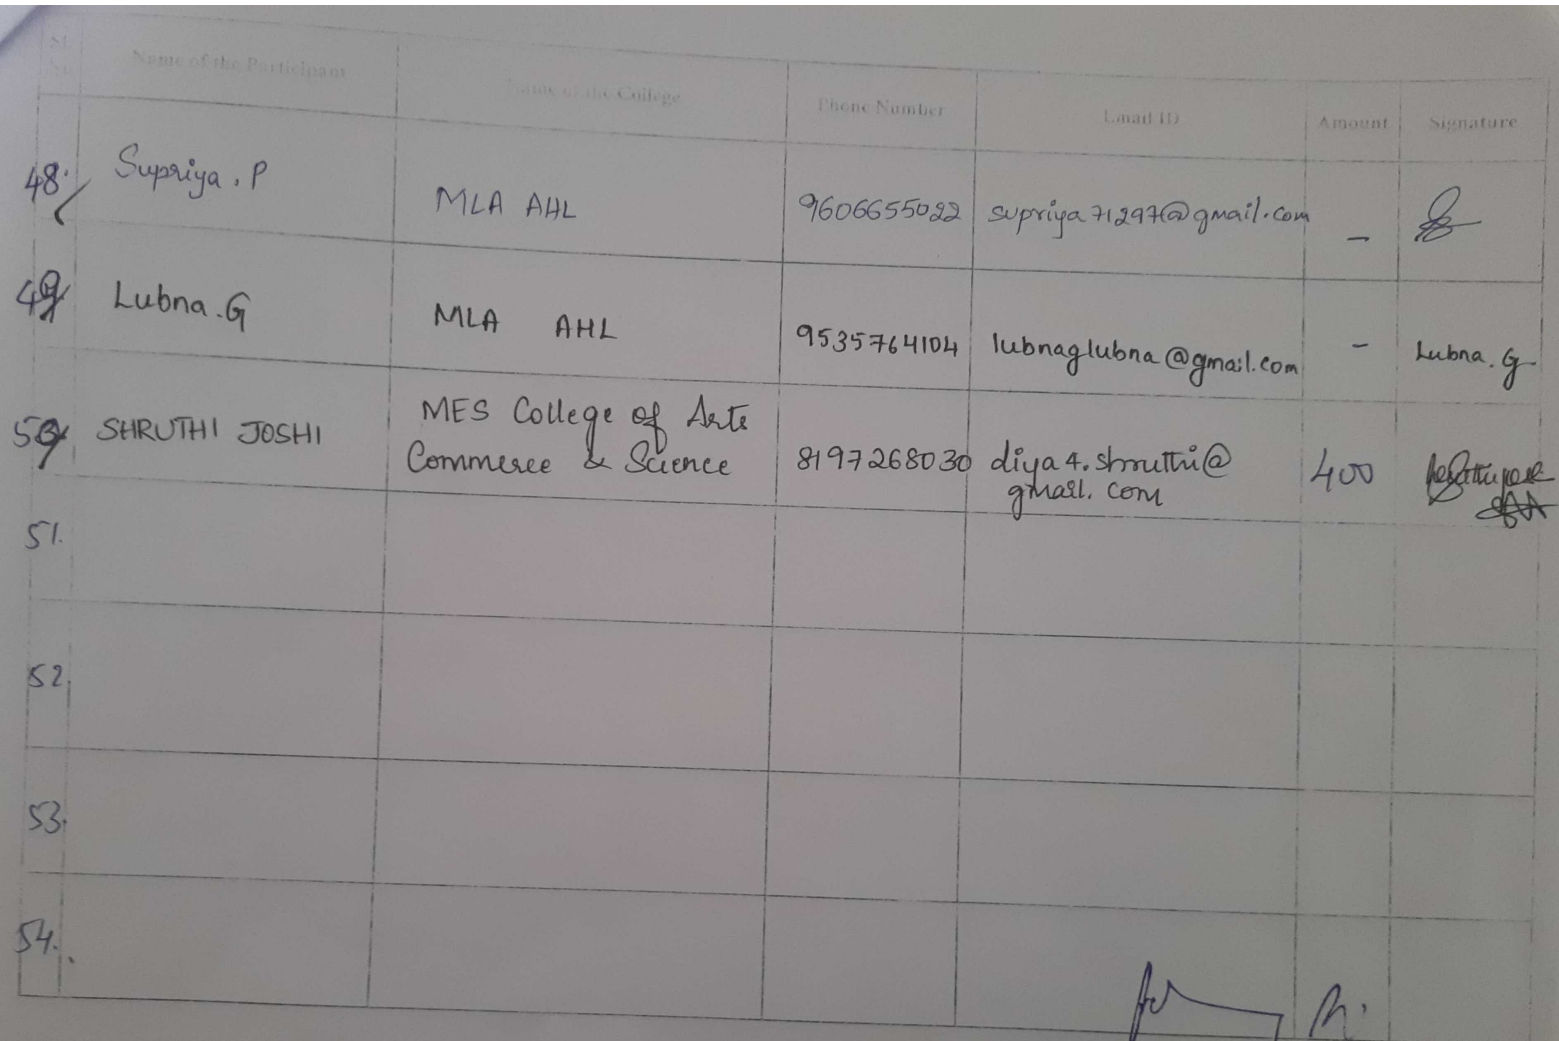 Sl. No. Name of the Participant Name of the College Phone Number Email ID Amount Signature
48. Supriya. P MLA AHL 9606655022 supriya71297@gmail.com –
49 Lubna.G MLA AHL 9535764104 lubnaglubna@gmail.com - Lubna. G
50 SHRUTHI JOSHI MES College of Arts
Commerce & Science 8197268030 diya4.shruthi@
gmail.com 400
51.
52.
53.
54.